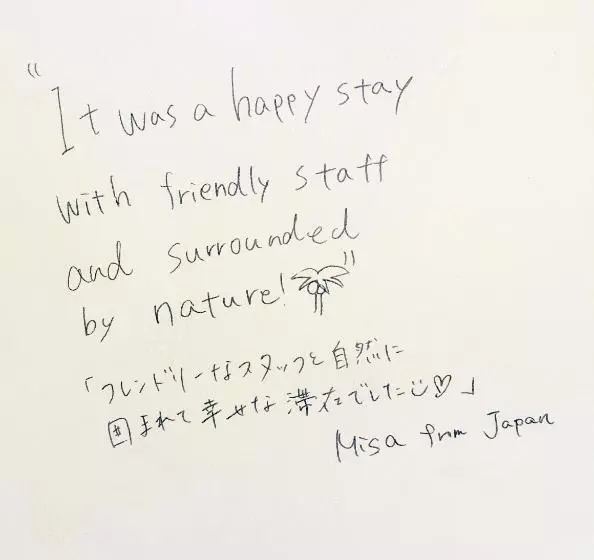 "It was a happy stay
with friendly staff
and surrounded
by nature!"
「フレンドリーなスタッフと自然に
囲まれて幸せな滞在でした♡」
Misa from Japan